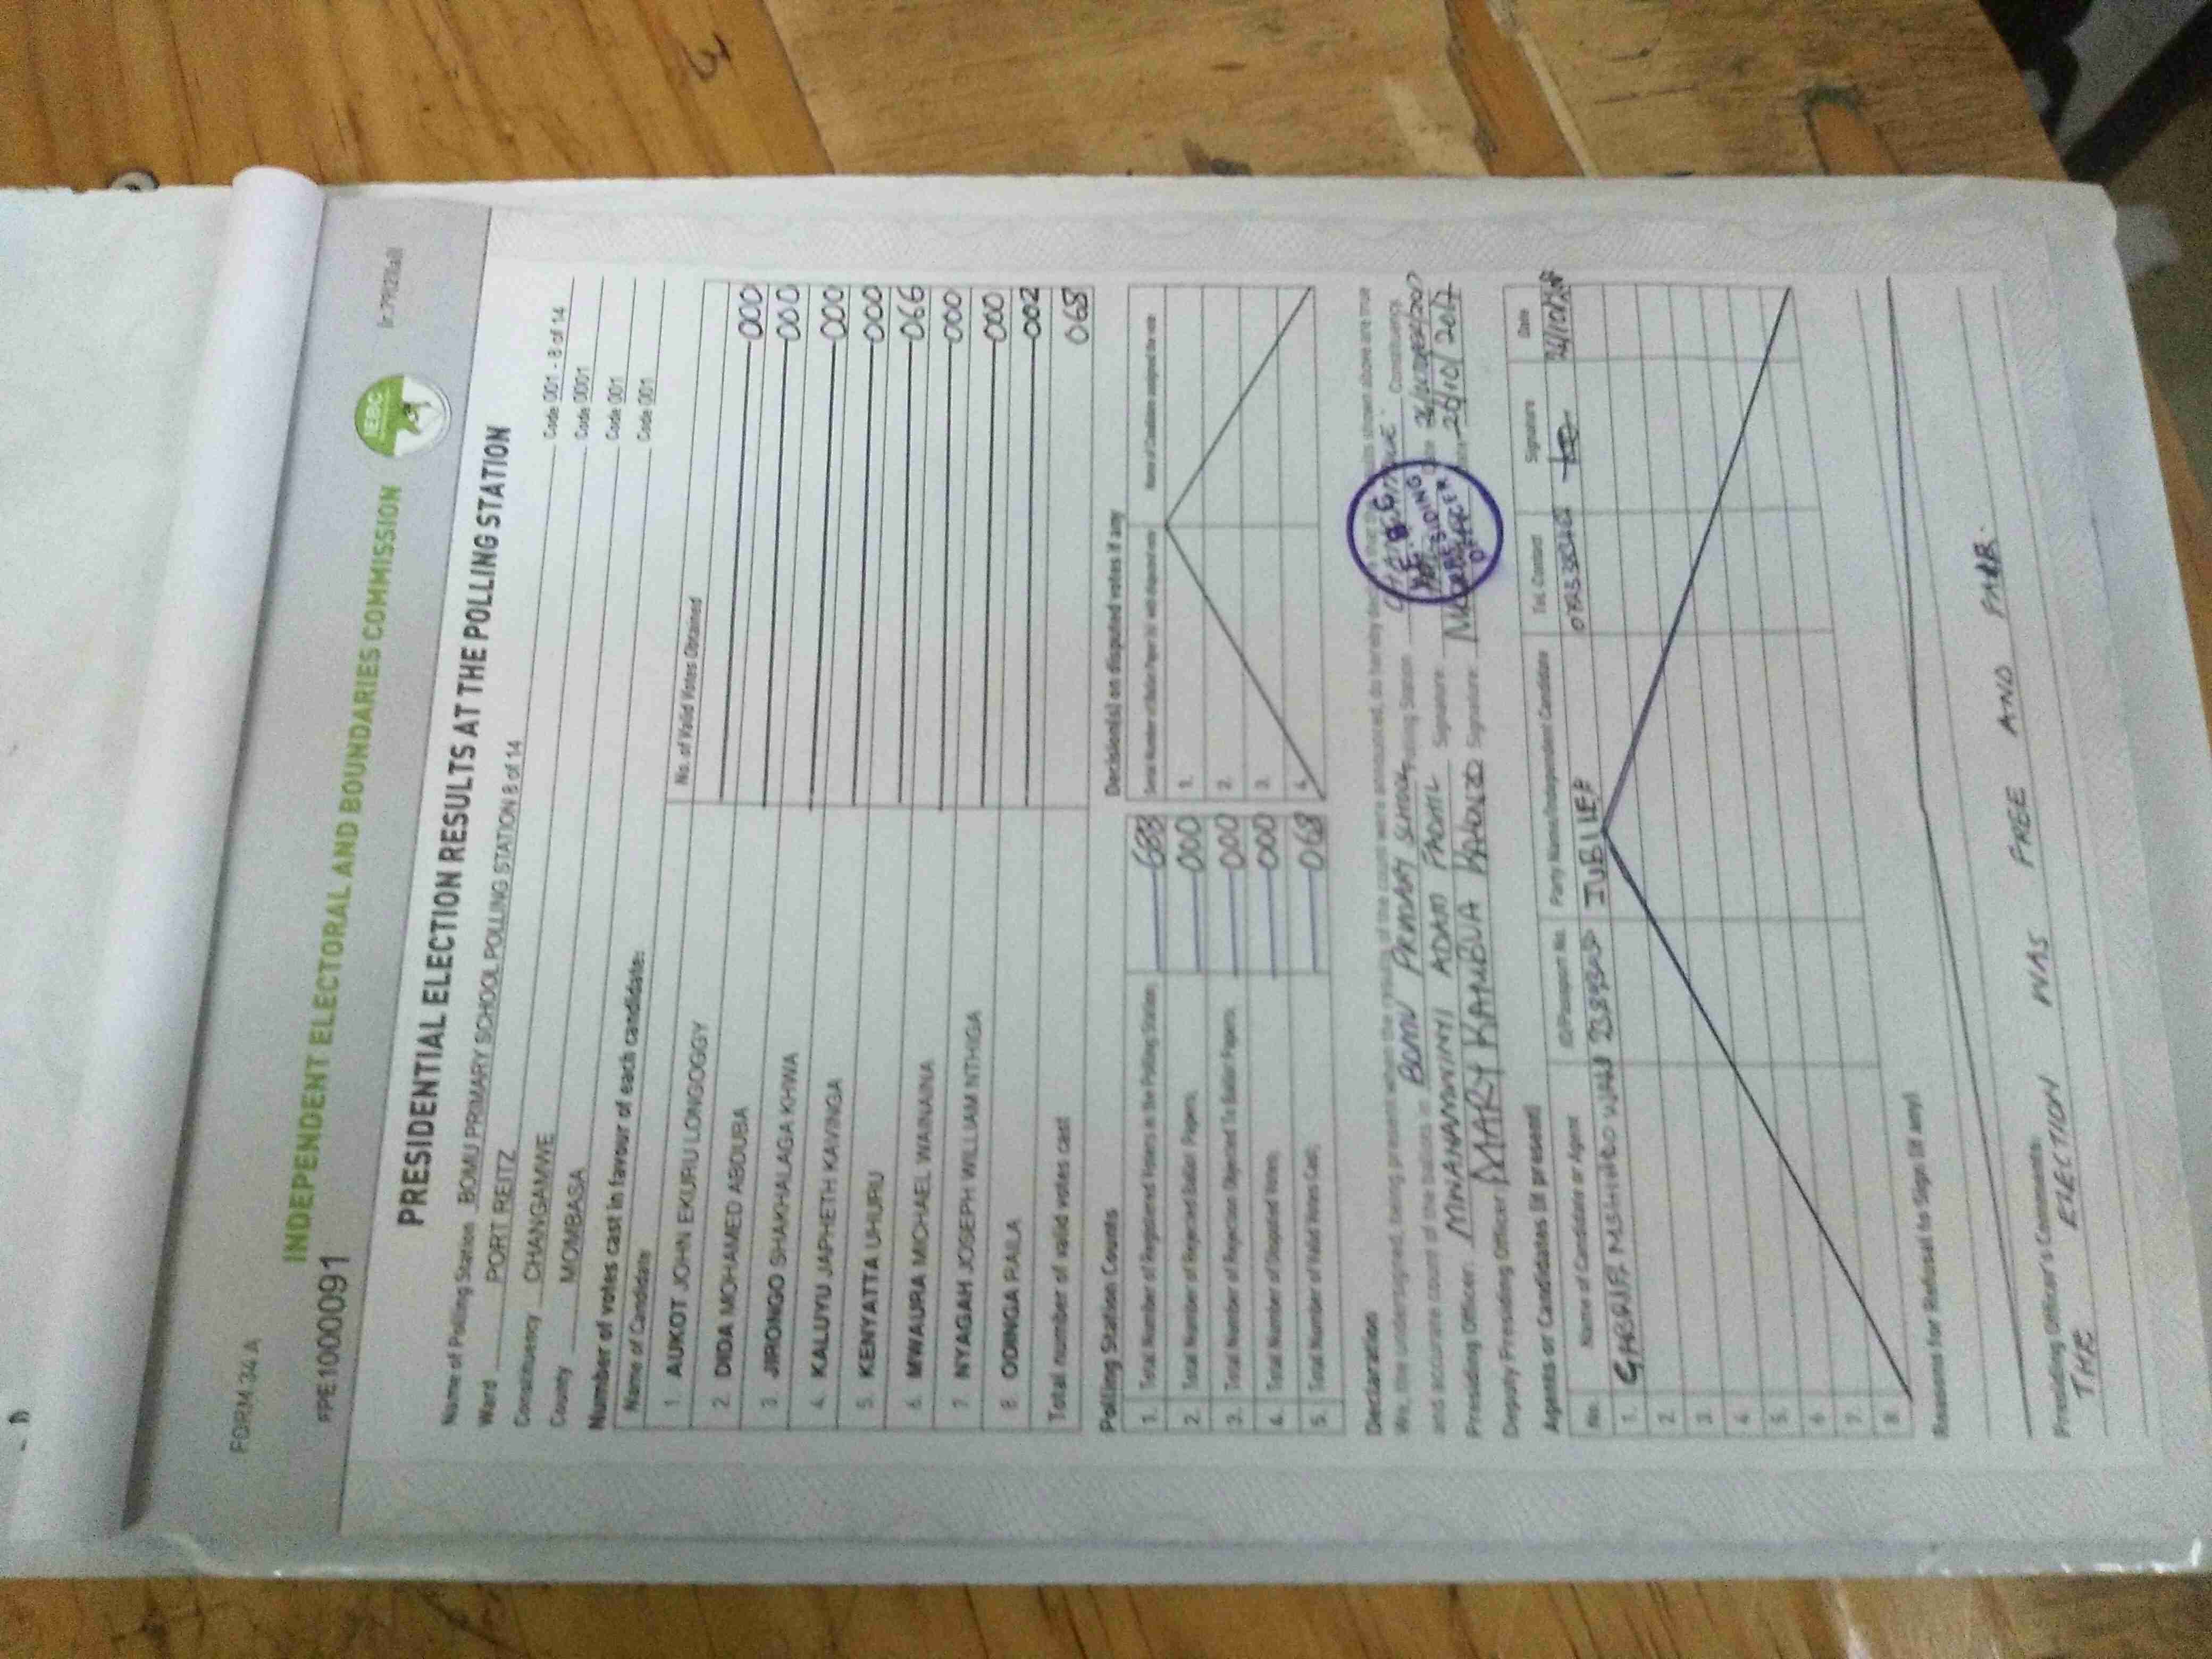 FORM 34 A
INDEPENDENT ELECTORAL AND BOUNDARIES COMMISSION
IEBC
FPE1000091
PRESIDENTIAL ELECTION RESULTS AT THE POLLING STATION
Name of Polling Station BOMU PRIMARY SCHOOL POLLING STATION 8 of 14 Code 001 - 8 of 14
Ward PORT REITZ Code 0001
Constituency CHANGAMWE Code 001
County MOMBASA Code 001
Number of votes cast in favour of each candidate:
Name of Candidate No. of Valid Votes Obtained
1. AUKOT JOHN EKURU LONGOGGY 000
2. DIDA MOHAMED ABDUBA 000
3. JIRONGO SHAKHALAGA KHWA 000
4. KALUYU JAPHETH KAVINGA 000
5. KENYATTA UHURU 066
6. MWAURA MICHAEL WAINAINA 000
7. NYAGAH JOSEPH WILLIAM NTHIGA 000
8. ODINGA RAILA 002
Total number of valid votes cast 068
Polling Station Counts Decision(s) on disputed votes if any
1. Total Number of Registered Voters in the Polling Station 688
2. Total Number of Rejected Ballot Papers 000 1.
3. Total Number of Rejection Objected To Ballot Papers 000 2.
4. Total Number of Disputed Votes 000 3.
5. Total Number of Valid Votes Cast 068 4.
Declaration
We, the undersigned, being present when the results of the count were announced, do hereby shown above are true
and accurate count of the ballots in BOMU PRIMARY SCHOOL Polling Station Constituency.
Presiding Officer MWANAMWINYI ADAM FADHIL Signature
Deputy Presiding Officer MARY KAMBUA Signature 26/10/2017
I.E.B.C
PRESIDING
OFFICER
Agents or Candidates (if present)
No. Name of Candidate or Agent ID/Passport No. Party Name/Independent Candidate Tel. Contact Signature Date
1.
2.
3.
4.
5.
6.
7.
8.
Reasons for Refusal to Sign (if any)
Presiding Officer's Comments
THE ELECTION WAS FREE AND FAIR.